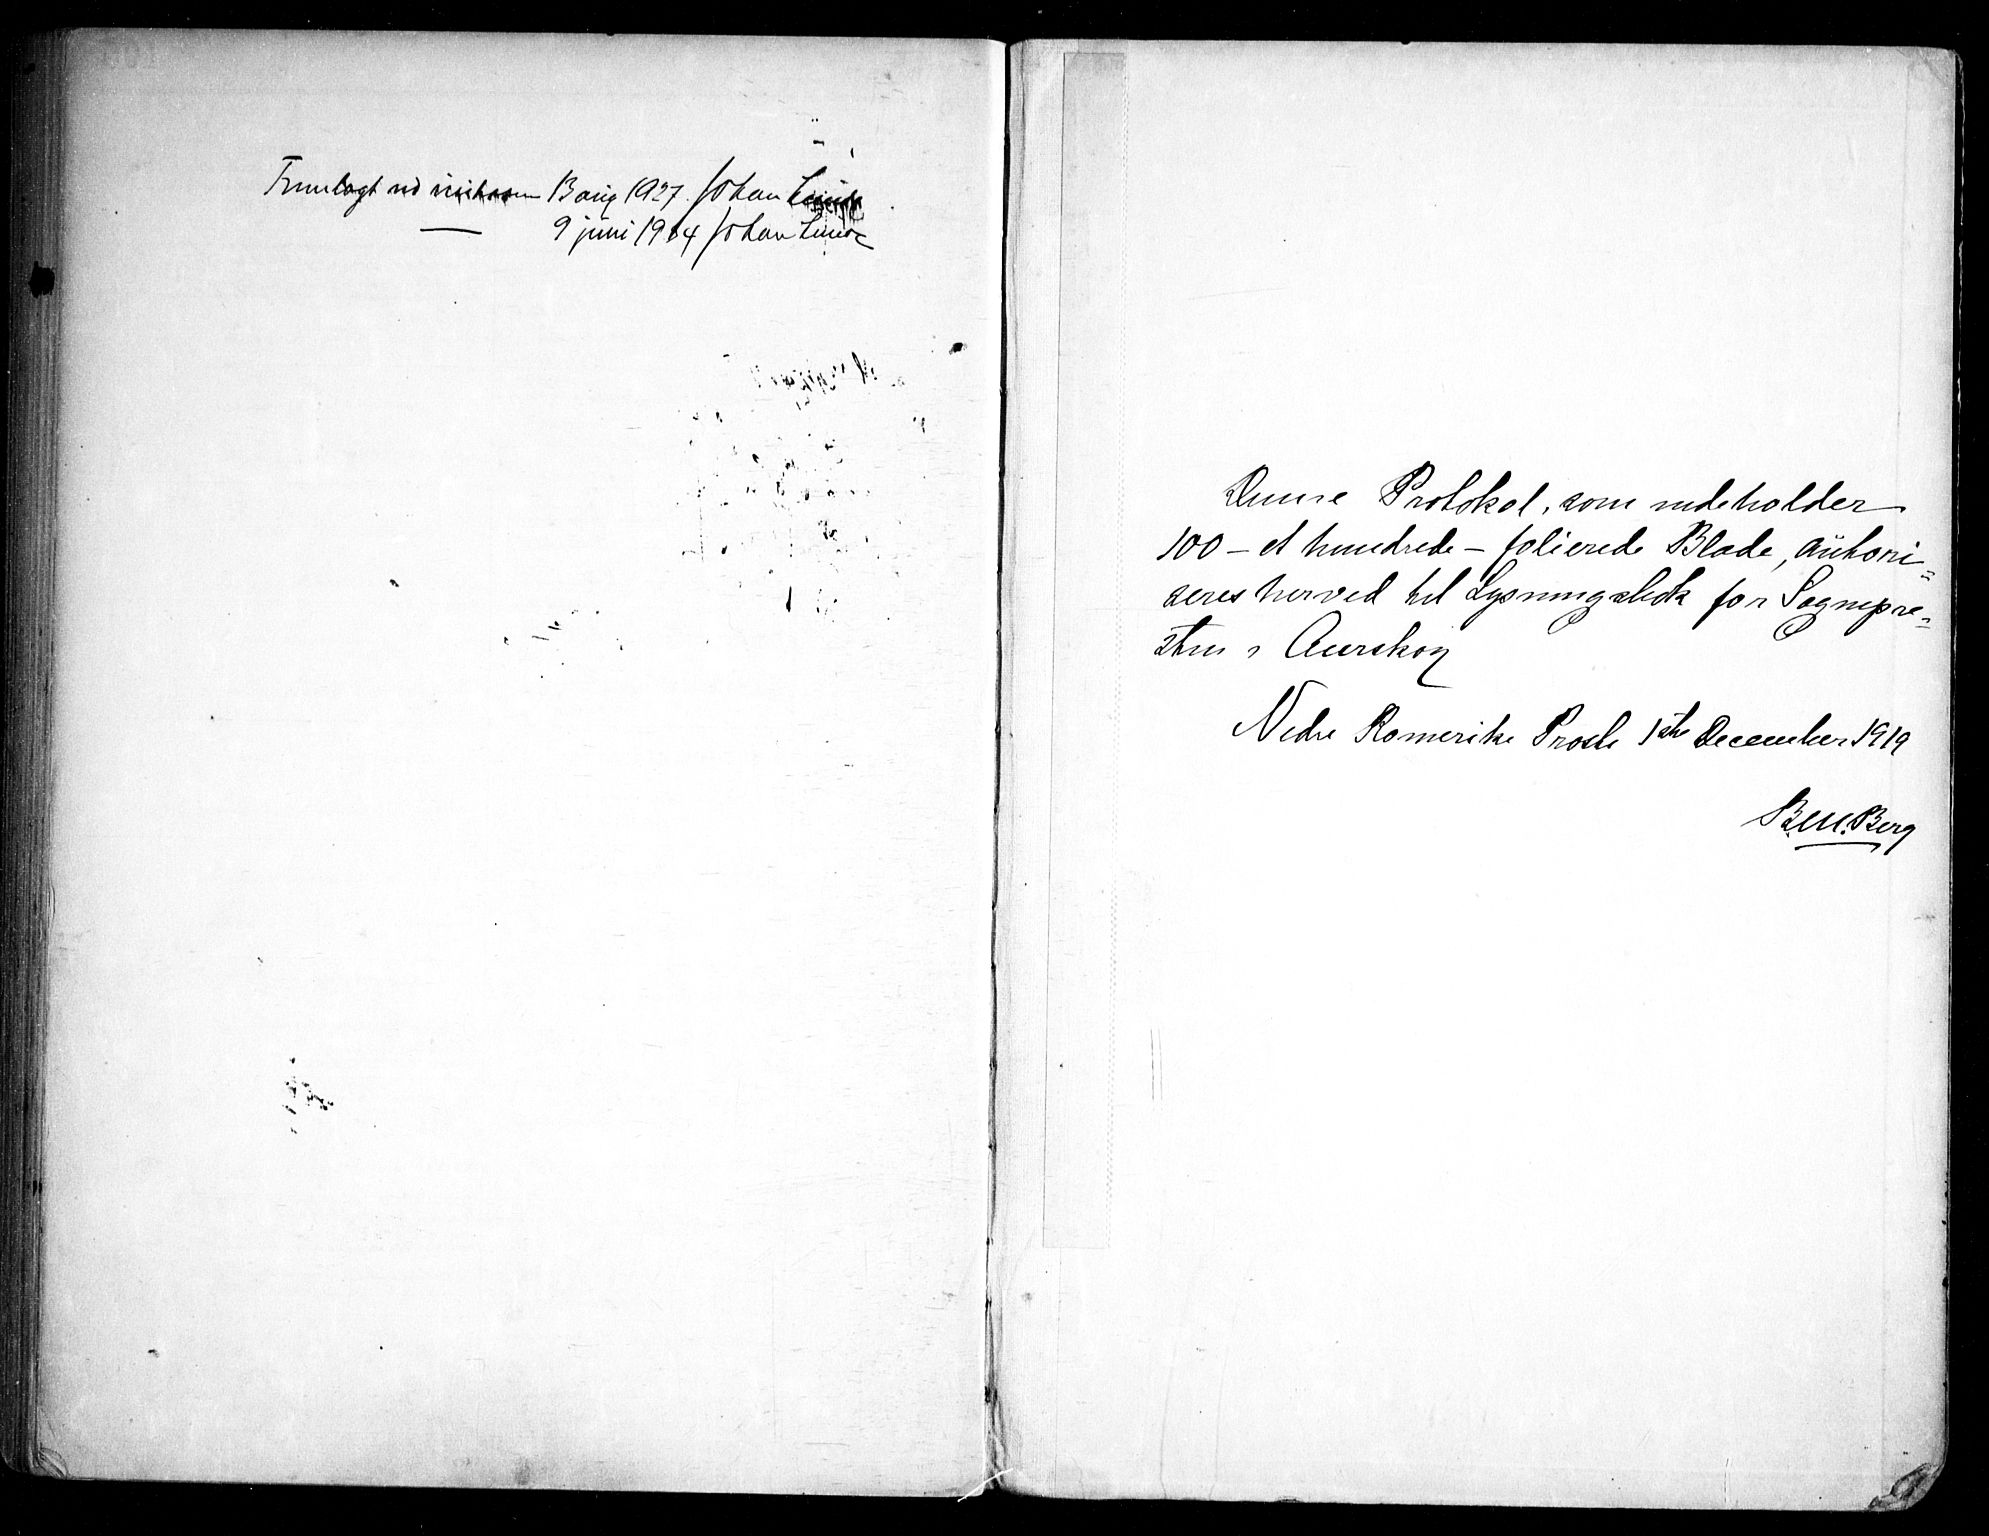 Fremlagt ved visitasen 13 aug 1927. Johan Lunde
— 9 juni 1934 Johan Lunde
Denne Protokol, som indeholder
100 – et hundrede – folierede Blade, autori=
seres herved til Lysningsbok for Sognepre=
sten i Aurskog
Nedre Romerike Prosti 1ste December 1919
Berg